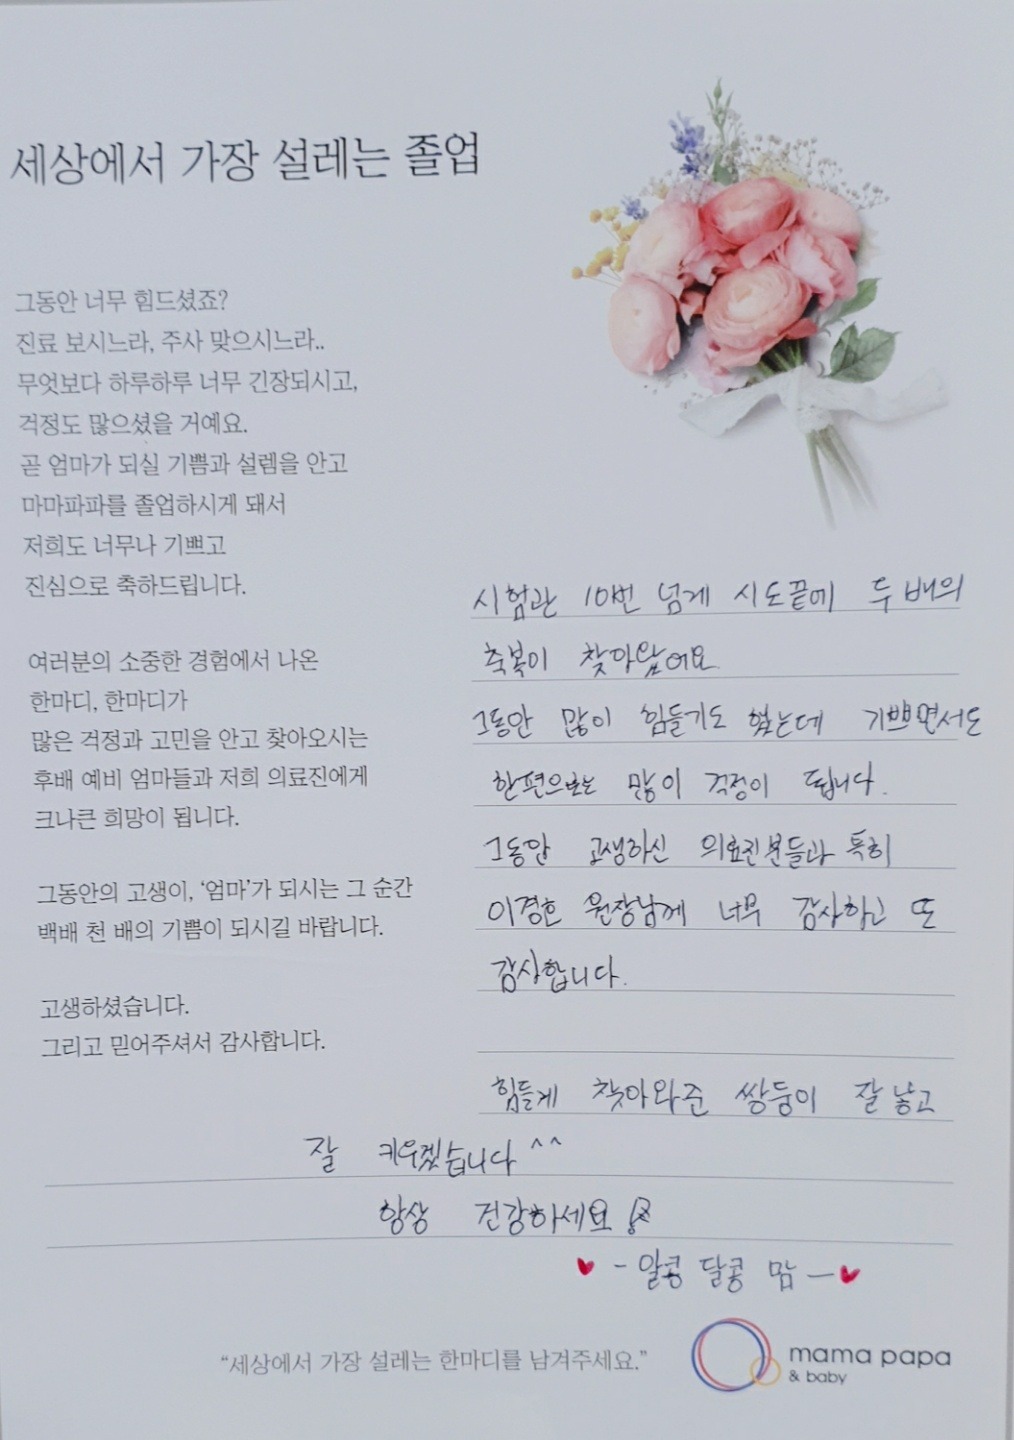 세상에서 가장 설레는 졸업
그동안 너무 힘드셨죠?
진료 보시느라, 주사 맞으시느라..
무엇보다 하루하루 너무 긴장되시고,
걱정도 많으셨을 거예요.
곧 엄마가 되실 기쁨과 설렘을 안고
마마파파를 졸업하시게 돼서
저희도 너무나 기쁘고
진심으로 축하드립니다.
여러분의 소중한 경험에서 나온
한마디, 한마디가
많은 걱정과 고민을 안고 찾아오시는
후배 예비 엄마들과 저희 의료진에게
크나큰 희망이 됩니다.
그동안의 고생이, ‘엄마’가 되시는 그 순간
백배 천 배의 기쁨이 되시길 바랍니다.
고생하셨습니다.
그리고 믿어주셔서 감사합니다.
시험관 10번 넘게 시도끝에 두 배의
축복이 찾아왔어요
그동안 많이 힘들기도 했는데 기쁘면서도
한편으로는 많이 걱정이 됩니다.
그동안 고생하신 의료진분들과 특히
이경호 원장님께 너무 감사하고 또
감사합니다.
힘들게 찾아와준 쌍둥이 잘 낳고
잘 키우겠습니다 ^^
항상 건강하세요
♥ - 알콩 달콩 맘 - ♥
“세상에서 가장 설레는 한마디를 남겨주세요.”
mama papa
& baby